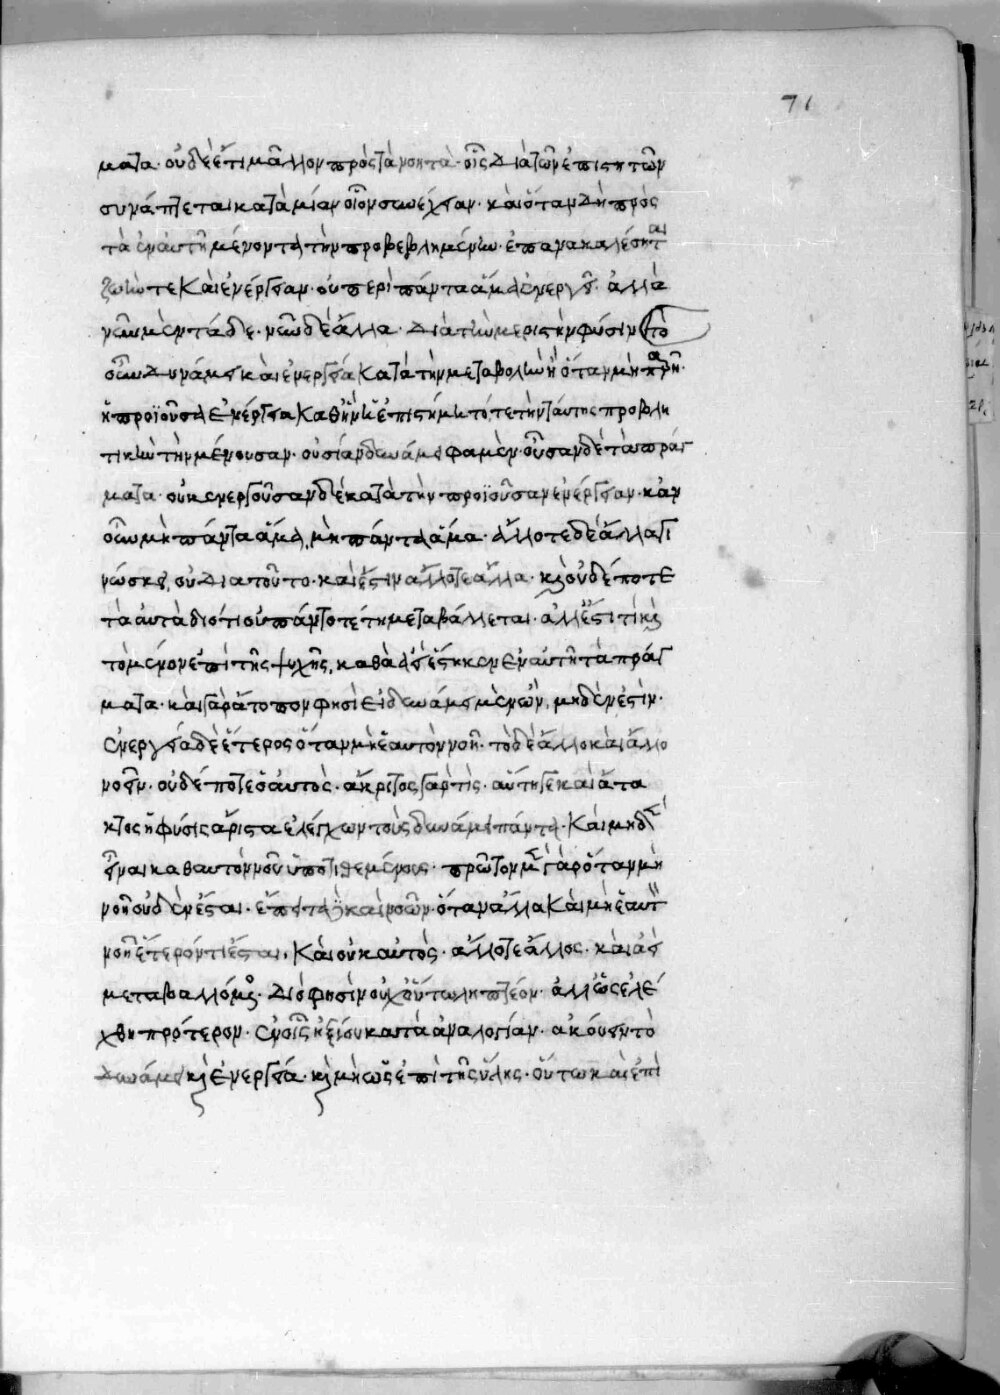 71
ματα· οὐδὲ ἔτι μᾶλλον πρὸς τὰ νοητὰ· οἷς διὰ τῶν ἐπιστητῶν
συνάπτεται κατὰ μίαν οἷον συνέχειαν· καὶ ὅταν δὴ πρὸς
τὰ ἐν αὐτῆ μένοντα τὴν προβεβλημένην· ἐπανακαλέσηται
ζωήν τε καὶ ἐνέργειαν· οὐ περὶ πάντα ἅμα ἐνεργεῖ· ἀλλὰ
νῦν μὲν τάδε· νῦν δὲ ἄλλα· διὰ τὴν μεριστὴν φύσιν· τὸ
οὖν δυνάμει καὶ ἐνεργεία κατὰ τὴν μεταβολὴν ἢ ὅταν μὴ παρῆ·
ἡ προϊοῦσα ἐνέργεια καθ' ἣν ἐπιστήμη τότε τὴν ταύτης προβλη
τικὴν τὴν μένουσαν· οὐσίαν δυνάμει φαμὲν· οὖσαν δὲ τὰ πράγ
ματα· οὐκ ἐνεργοῦσαν δὲ κατὰ τὴν προϊοῦσαν ἐνέργειαν· κἂν
οὖν μὴ πάντα ἅμα, μὴ πάντα ἅμα· ἄλλοτε δὲ ἄλλα γι
νώσκει, οὐ διὰ τοῦτο· καὶ ἔστιν ἄλλοτε ἄλλα· καὶ οὐδέποτε
τὰ αὐτὰ διότι οὐ πάντοτέ τη μεταβάλλεται· ἀλλ' ἔστι τι καὶ
τὸ μένον ἐπὶ τῆς ψυχῆς, καθὰ ἀεὶ ἕστηκεν ἐν αὐτῆ τὰ πράγ
ματα· καὶ γὰρ ἄτοπον φησὶ εἰ δυνάμει μὲν ὢν, μηδέν ἐστιν·
ἐνεργεία δὲ ἕτερος ὅταν μὴ ἑαυτὸν νοῆ· τὸ δὲ ἄλλο καὶ ἄλλο
νοεῖν· οὐδέποτε ὁ αὐτὸς· ἄκριτος γάρ τίς· αὕτη γε καὶ ἄτα
κτος ἡ φύσις ἄριστα ἐλέγχων τοὺς δυνάμει πάντα· καὶ μηδὲν
εἶναι καθ αυτὸν νοῦν ὑποτιθεμένους· πρῶτον μὲν γὰρ ὅταν μὴ
νοῆ οὐδέν ἔσται· ἔπειτα καὶ νοῶν· ὅταν ἄλλα καὶ μὴ ἑαυτὸν
νοῆ ἕτερόν τι ἔσται, καὶ οὐκ αὐτὸς· ἄλλοτε ἄλλος· καὶ ἀεὶ
μεταβαλλόμενος· διό φησὶν οὐχ οὕτω ληπτέον· ἀλλ' ὡς ἐλέ
χθη πρότερον· ἐν οἷς ἠξίου κατὰ ἀναλογίαν· ἀκούειν τὸ
δυνάμει καὶ ἐνεργεία· καὶ μὴ ὡς ἐπὶ τῆς ὕλης· οὕτω καὶ ἐπὶ